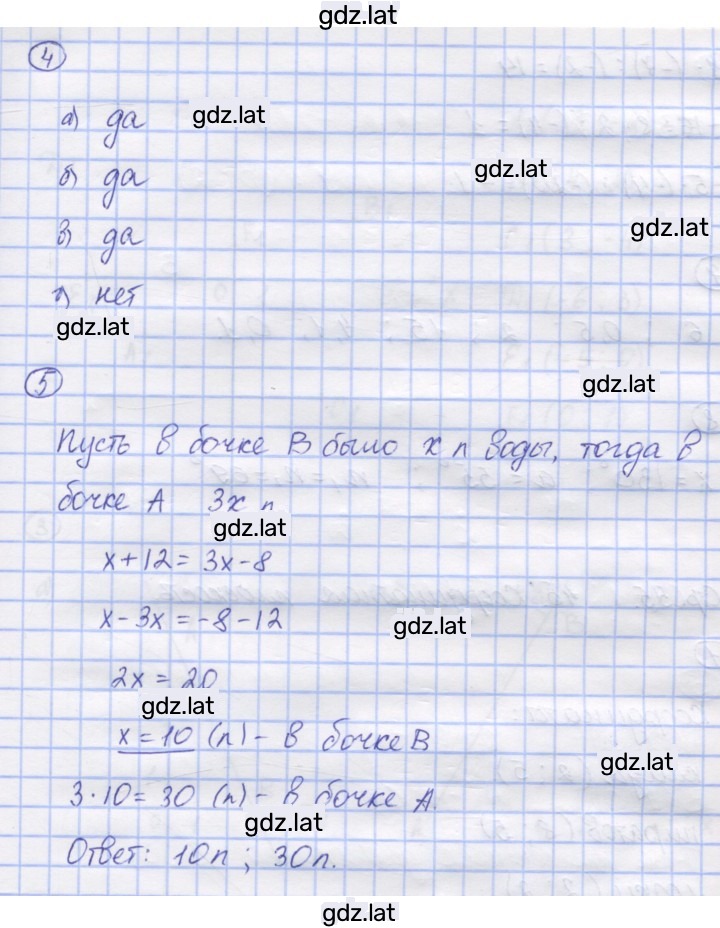 gdz.lat
4
а) да gdz.lat
б) да gdz.lat
в) да gdz.lat
г) нет
gdz.lat
5 gdz.lat
Пусть в бочке В было х л воды, тогда в
бочке А 3х л
gdz.lat
х+12= 3х-8
х-3х = -8-12 gdz.lat
2х = 20
gdz.lat
х=10 (л) - в бочке В
gdz.lat
3·10= 30 (л) - в бочке А.
gdz.lat
Ответ: 10л ; 30л.
gdz.lat